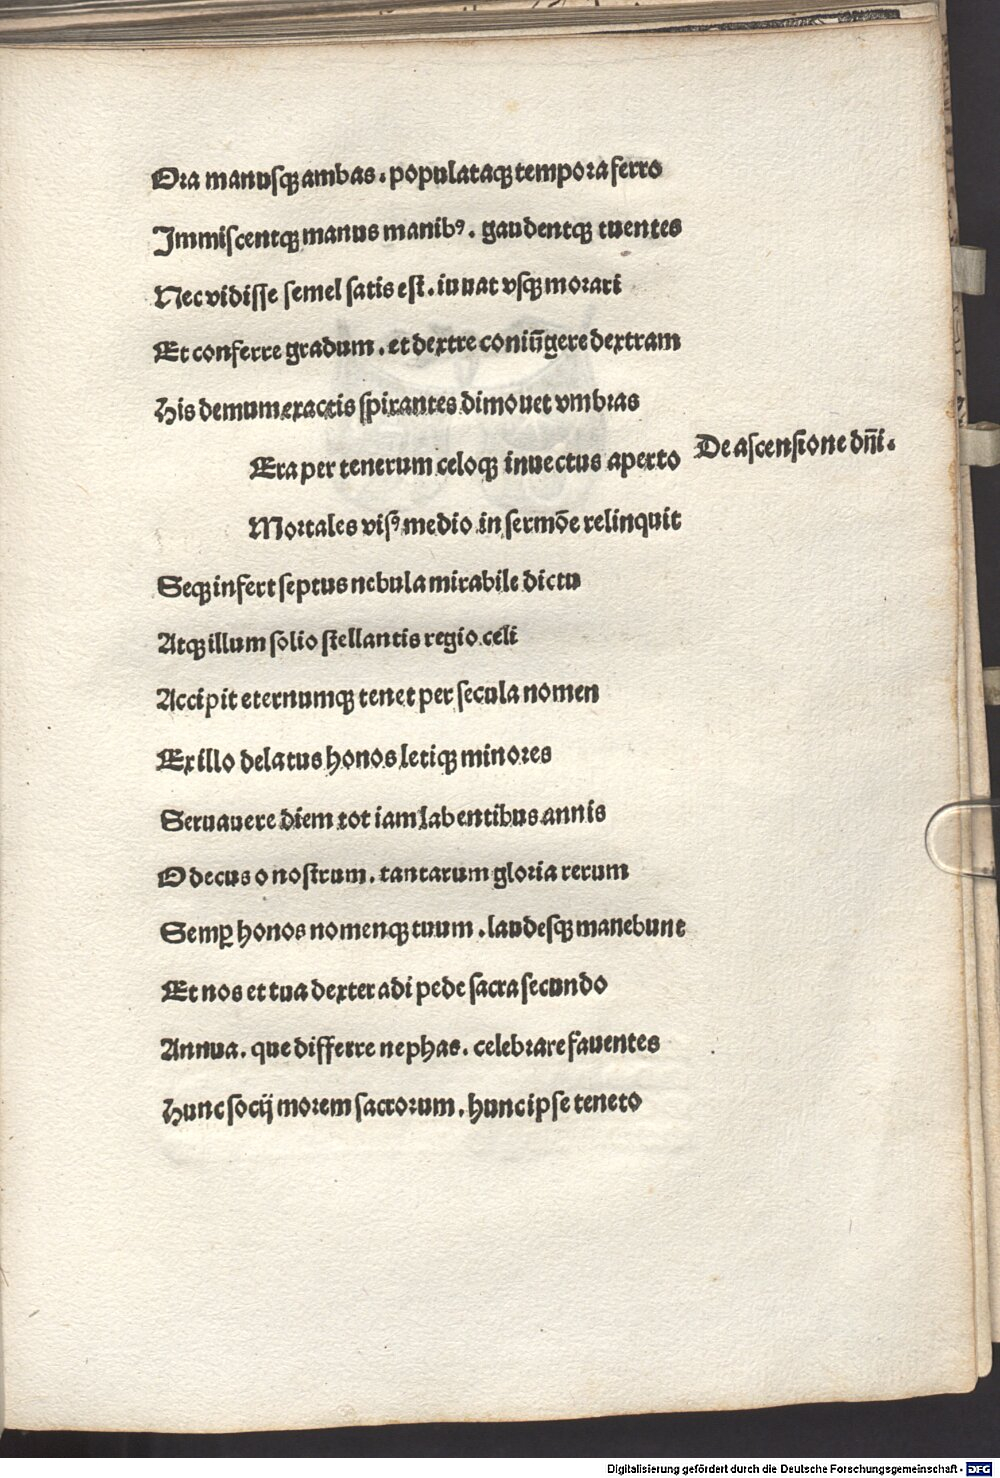 Ora manusqꝫ ambas. populataqꝫ tempora ferro
Immiscentqꝫ manus manibꝰ. gaudentqꝫ tuentes
Nec vidisse semel satis est. iuuat vsqꝫ morari
Et conferre gradum. et dextre coniūgere dextram
His demum exactis spirantes dimouet vmbras
Era per tenerum celoqꝫ inuectus aperto
De ascensione dn̄i.
Mortales visꝰ medio in sermōe relinquit
Seqꝫ infert septus nebula mirabile dictu
Atqꝫ illum solio stellantis regio celi
Accipit eternumqꝫ tenet per secula nomen
Ex illo delatus honos letiqꝫ minores
Seruauere diem tot iam labentibus annis
O decus o nostrum. tantarum gloria rerum
Semꝑ honos nomenqꝫ tuum. laudesqꝫ manebunt
Et nos et tua dexter adi pede sacra secundo
Annua. que differre nephas. celebrare fauentes
Hunc socij morem sacrorum. hunc ipse teneto
Digitalisierung gefördert durch die Deutsche Forschungsgemeinschaft - DFG